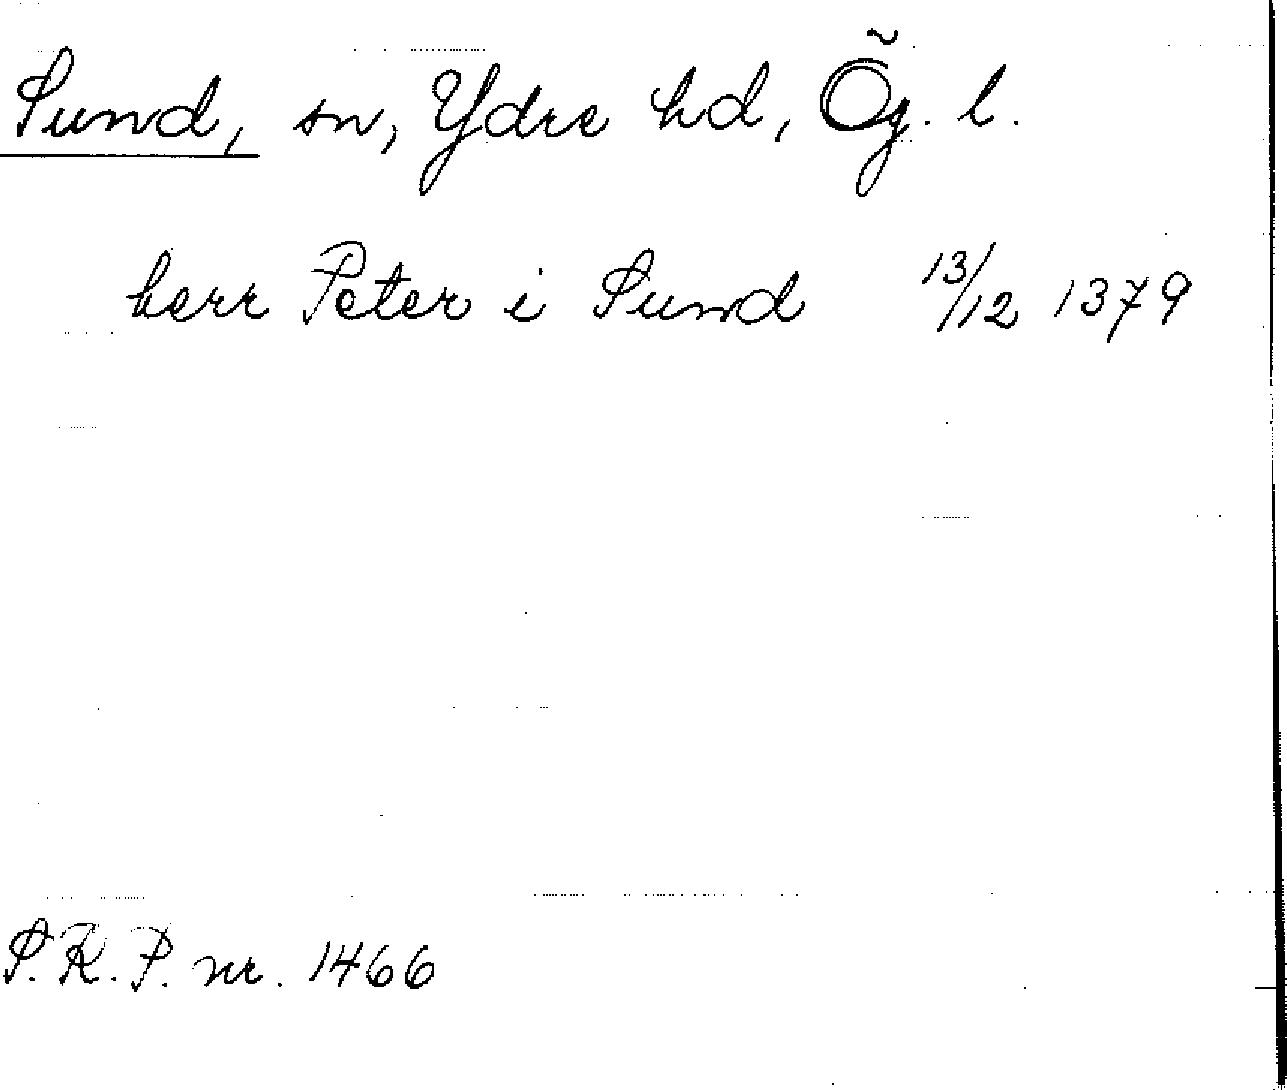 Sund, sn, Ydre hd, Õg. l.
herr Peter i Sund 13/12 1379
S.R.P. nr. 1466